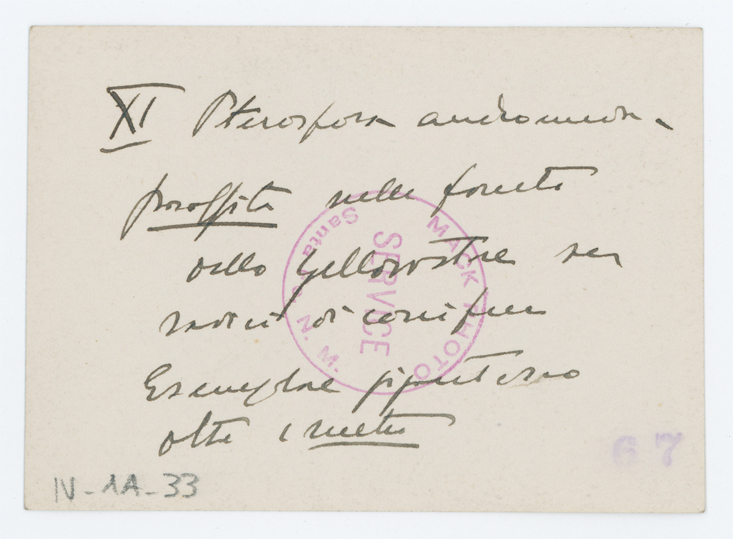 XI Pterospora andromedea
parassita nelle foreste
dello Yellowstone su
radici di conifere
Esemplare gigantesco
oltre 1 metro
MACK PHOTO
SERVICE
Santa
N. M.
67
IV-1A-33